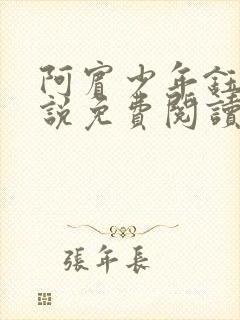 阿賓少年鈺
説免費閱讀
張年長